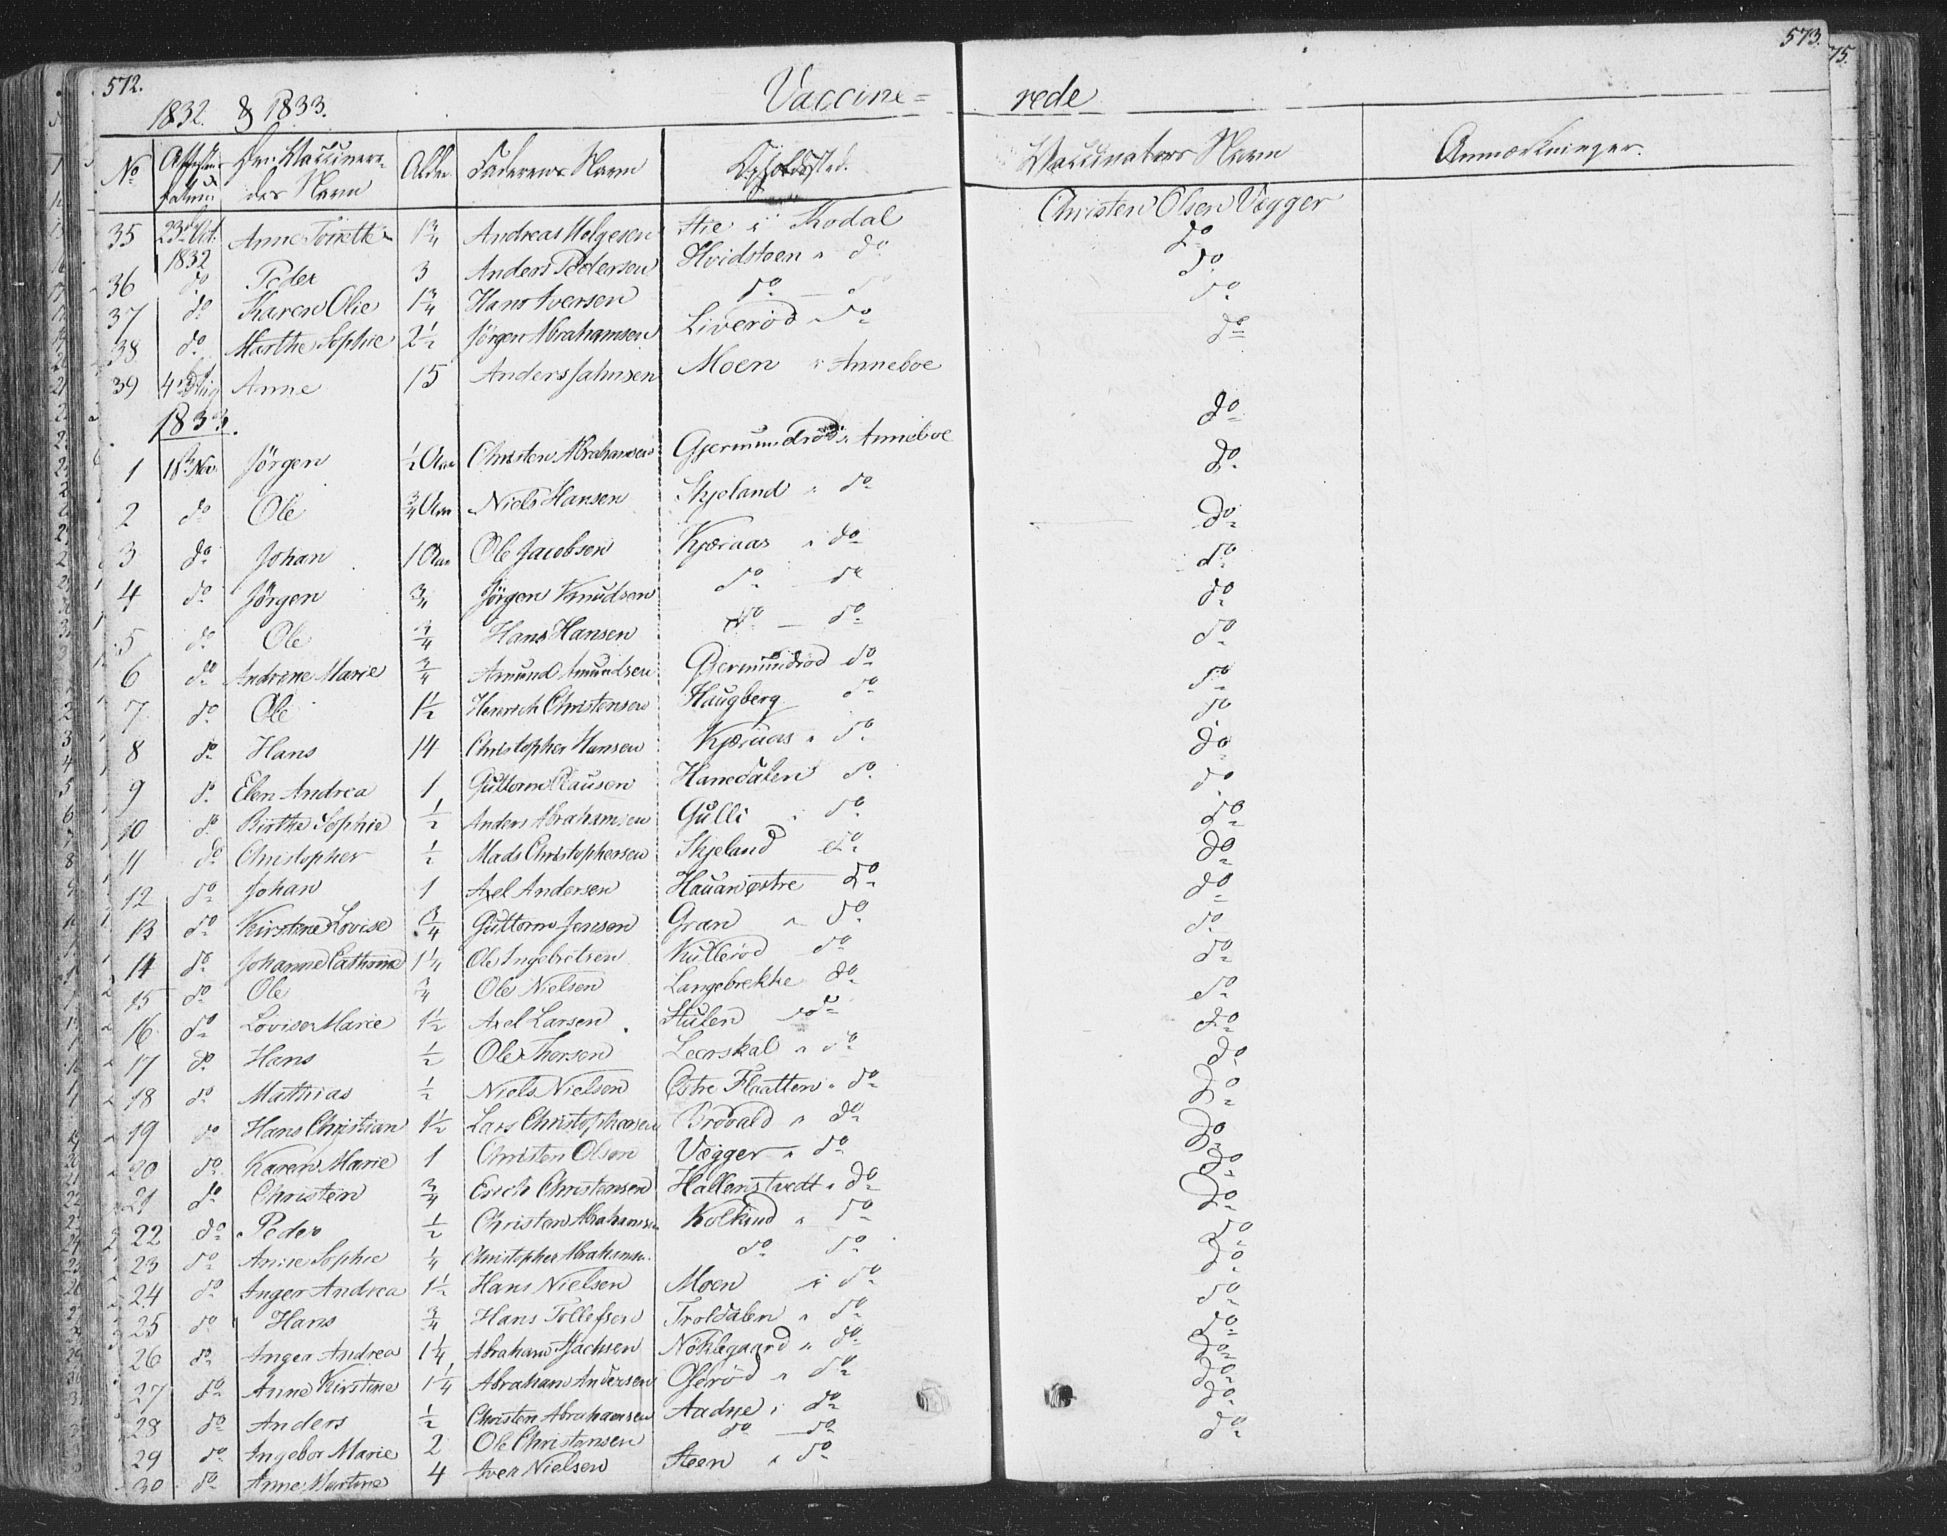 572.
573.
75.
1832. & 1833.
Vaccine= rede
No Attestens Datum De Vaccinerendes Navn Alder Faderens Navn Opholdsted. Vaccinators Navn Anmærkninger.
35 23de Oct. 1832 Anne Torette 1 3/4 Andreas Helgesen Stie i Kodal Christen Olsen Vegger
36 do Peder 3 Anders Pedersen Hvidsteen " do do
37 do Karen Olie 1 3/4 Hans Iversen do — do do
38 do Marthe Sophie 2 1/2 Jørgen Abrahamsen Liverød " do do
39 Anne 15 Anders Jahnsen Moen i Anneboe do
1833.
1 18de Nov. Jørgen 1/2 Aar Christen Abrahamsen Gjermundrød i Anneboe do
2 do Ole 3/4 Aar Niels Hansen Skjeland i do do
3 do Johan 1 Aar Ole Jacobsen Kjæraas i do do
4 do Jørgen 3/4 Jørgen Knudsen do — do do
5 do Ole 3/4 Hans Hansen do — do do
6 do Andrine Marie 3/4 Amund Amundsen Gjermundrød do do
7 do Ole 1 1/2 Henrich Christensen Haugberg do do
8 do Hans 14 Christopher Hansen Kjæraas " do do
9 do Elen Andrea 1 Guttorm Clausen Hanedalen do do
10 do Birthe Sophie 1/2 Anders Abrahamsen Gulli i do do
11 do Christopher 1/2 Mads Christophersen Skjeland do do
12 do Johan 1 Axel Andersen Hauan østre do do
13 do Kirstine Lovise 3/4 Guttorm Jensen Gran " do do
14 do Johanne Cathrine 1 1/4 Ole Ingebretsen Kullerød do do
15 do Ole 3/4 Ole Nielsen Langebrekke do do
16 do Lovise Marie 1 1/2 Axel Larsen Stulen do do
17 do Hans 1/2 Ole Thorsen Leerskal " do do
18 do Mathias 1/2 Niels Nielsen Østre Flaatten " do do
19 do Hans Christian 1 1/2 Lars Christophersen Brovald " do do
20 do Karen Marie 1 Christen Olsen Vegger " do do
21 do Christen 3/4 Erich Christensen Hallenstvedt " do do
22 do Peder 1/2 Christen Abrahamsen Kolkind " do do
23 do Anne Sophie 1/4 Christopher Abrahams. do do do
24 do Inger Andrea 1 1/2 Hans Nielsen Moen i do do
25 do Hans 3/4 Hans Tollefsen Troldalen " do do
26 do Inger Andrea 1 1/4 Abraham Isachsen Nøklegaard " do do
27 do Anne Kirstine 1 1/4 Abraham Andersen Olerød " do do
28 do Anders 1/2 Christen Abrahamsen Aadne i do do
29 do Ingebor Marie 2 Ole Christensen do — do do
30 do Anne Martine 4 Iver Nielsen Steen " do